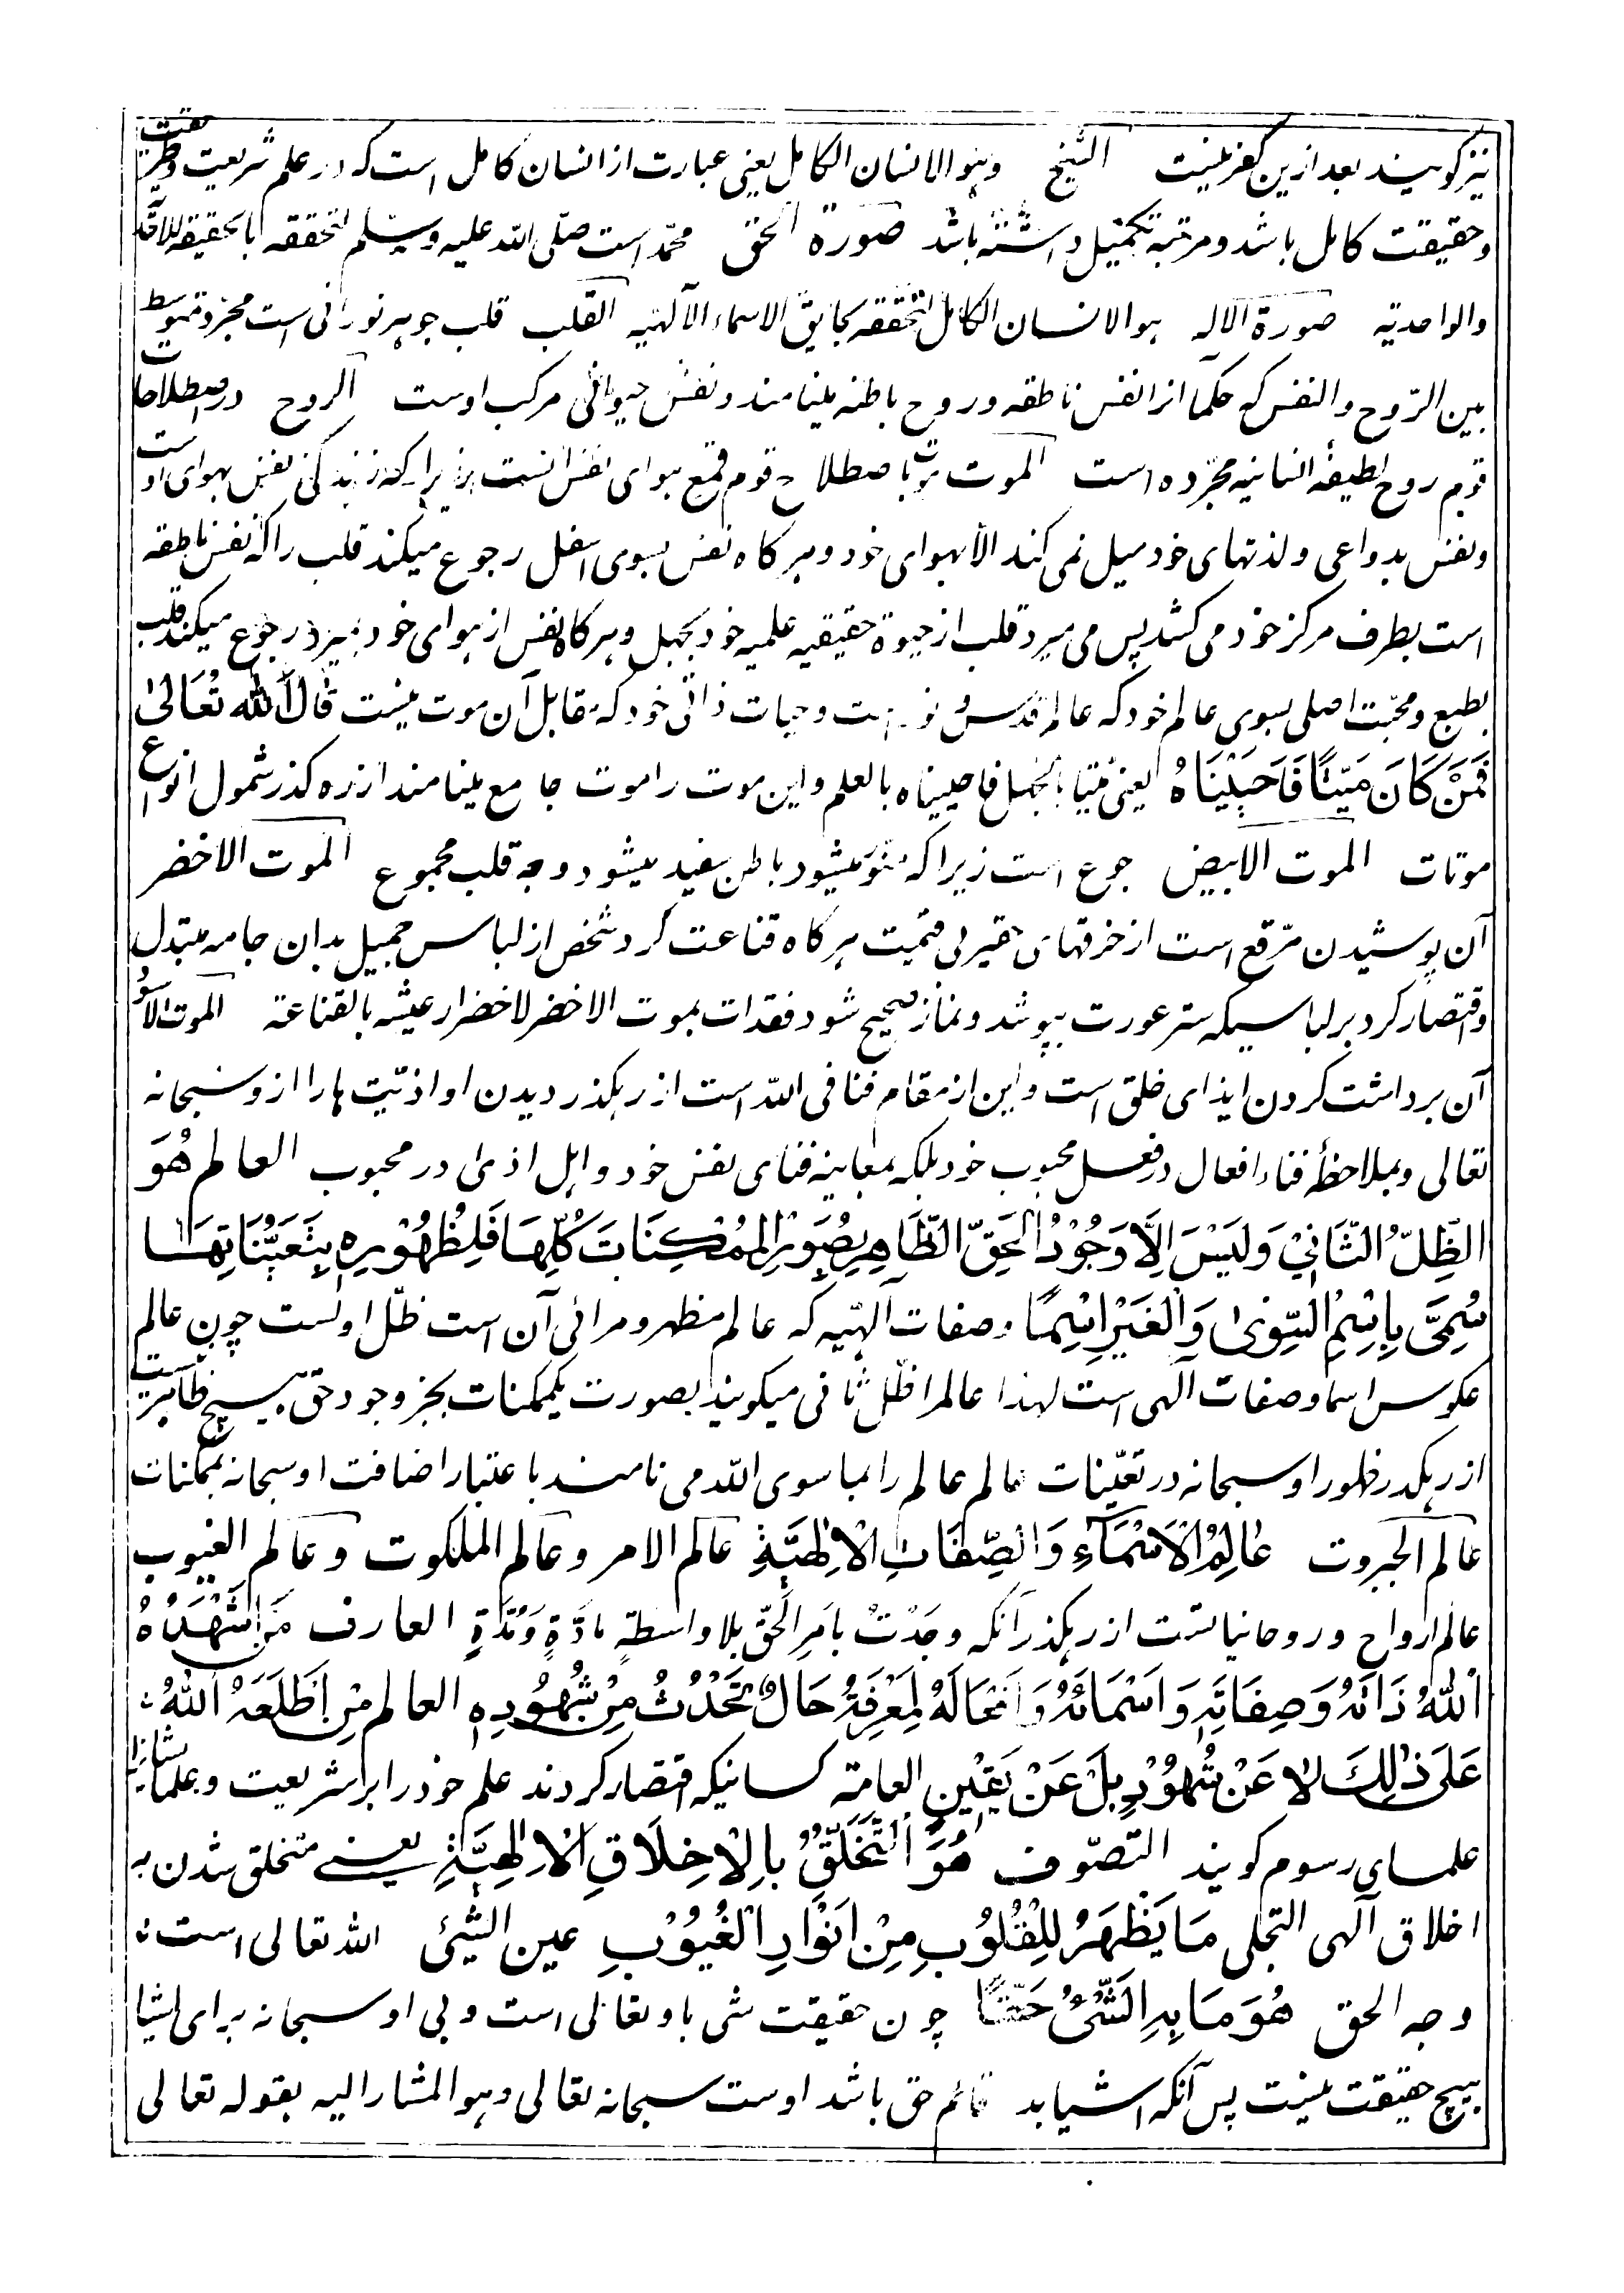 نیز گویند بعد ازین کفر نیست الشیخ وهو الانسان الکامل یعنی عبارت از انسان کامل است که در علم شریعت وطریقت
وحقیقت کامل باشد ومرتبه تکمیل داشته باشد صورة الحق محمد است صلی الله علیه وسلم لتحققه بالحقیقه الاحدیه
والواحدیه صورة الاله هو الانسان الکامل لتحققه بحقایق الاسماء الالهیه القلب قلب جوهر نورانی است مجرد متوسط
بین الروح والنفس که حکما آنرا نفس ناطقه وروح باطنه مینامند ونفس حیوانی مرکب اوست الروح در اصطلاحات
قوم روح لطیفهٔ انسانیه مجرده است الموت باصطلاح قوم قمع هوای نفس است زیرا که زندگی نفس بهوای اوست
ونفس بدواعی ولذتهای خود میل نمی کند الا بهوای خود وهرکاه نفس بسوی اسفل رجوع میکند قلب را که نفس ناطقه
است بطرف مرکز خود می کشد پس می میرد قلب از حیوة حقیقیه علمیه خود بجهل وهرکاه نفس از هوای خود بمیرد رجوع میکند قلب
بطبع ومحبت اصلی بسوی عالم خود که عالم قدس و نور است وحیات ذاتی خود که مقابل آن موت نیست قَالَ اللهُ تَعَالیٰ
فَمَنْ كَانَ مَيِّتًا فَاَحْيَيْنَاهُ یعنی میتا بالجهل فاحییناه بالعلم واین موت را موت جامع مینامند از ره کذر شمول انواع
موتات الموت الابیض جوع است زیرا که منور میشود باطن سفید میشود وجه قلب مجموع الموت الاخضر
آن پوشیدن مرقع است از خرقهای حقیر بی قیمت هرکاه قناعت کرد شخص از لباس جمیل بدان جامه مبتدل
واقتصار کرد بر لباسیکه ستر عورت بپوشد ونماز صحیح شود فقد مات بموت الاخضر لاخضرار عیشه بالقناعة الموت الاسود
آن برداشت کردن ایذای خلق است واین از مقام فنا فی الله است از رهکذر دیدن او اذیت ها را از و سبحانه
تعالی وبملاحظهٔ فناء افعال در فعل محبوب خود بلکه بمعاینه فنای نفس خود واهل اذی را در محبوب العالم هُوَ
الظِّلُّ الثَّانِيْ وَلَيْسَ اِلَّا وَجُوْدُ الْحَقِّ الظَّاهِرِ بِصُوَرِ الْمُمْكِنَاتَ كُلِّهَا فَلِظُهُوْرِهٖ بِتَعَيُّنَاتِهَا
سُمِّيَ بِاِسْمِ السِّوٰی وَالْغَيْرِ اِسْمًا وصفات آلهیه که عالم مظهر ومرائی آن است ظل اولست چون عالم
عکوس اسما وصفات آلهی است لهذا عالم را ظل ثانی میکویند بصورت ممکنات بجز وجود حق هیچ ظاهر نیست
از رهکذر ظهور او سبحانه در تعینات عالم عالم را بما سوی الله می نامند باعتبار اضافت او سبحانه بممکنات
عالم الجبروت عَالِمُ الْاَسْمَآءِ وَالصِّفَاتِ الْاِلٰهِيَّةِ عالم الامر وعالم الملکوت وعالم الغیوب
عالم ارواح وروحانیاتست از رهکذر آنکه وجدت بامر الحق بلا واسطة مادة ومدة العارف مَنْ اَشْهَدَهُ
اللهُ ذَاتَهُ وَصِفَاتِهٖ وَاَسْمَائَهُ وَاَفْعَالَهُ لِمَعْرِفَةُ حَالٌ تَحْدُثُ مِنْ شُهُوْدِهٖ العالم مَنْ اَطْلَعَهُ اللهُ
عَلٰی ذٰلِكَ لَا عَنْ شُهُوْدٍ بَلْ عَنْ يَقِيْنٍ العامة کسانیکه اقتصار کردند علم خود را بر شریعت وعلمای
علمای رسوم کویند التصوف هُوَ التَّخَلُّقُ بِالْاِخْلَاقِ الْاِلٰهِيَّةِ یعنی متخلق شدن به
اخلاق آلهی التجلی مَا يَظْهَرُ لِلْقُلُوْبِ مِنْ اَنْوَارِ الْغُيُوْبِ عین الشیئ الله تعالی است
وجه الحق هُوَ مَا بِهِ الشَّيْئُ حَقًّا چون حقیقت شی باو تعالی است وبی او سبحانه برای اشیا
هیچ حقیقت نیست پس آنکه اشیا بد قائم حق باشد اوست سبحانه تعالی وهو المشار الیه بقوله تعالی